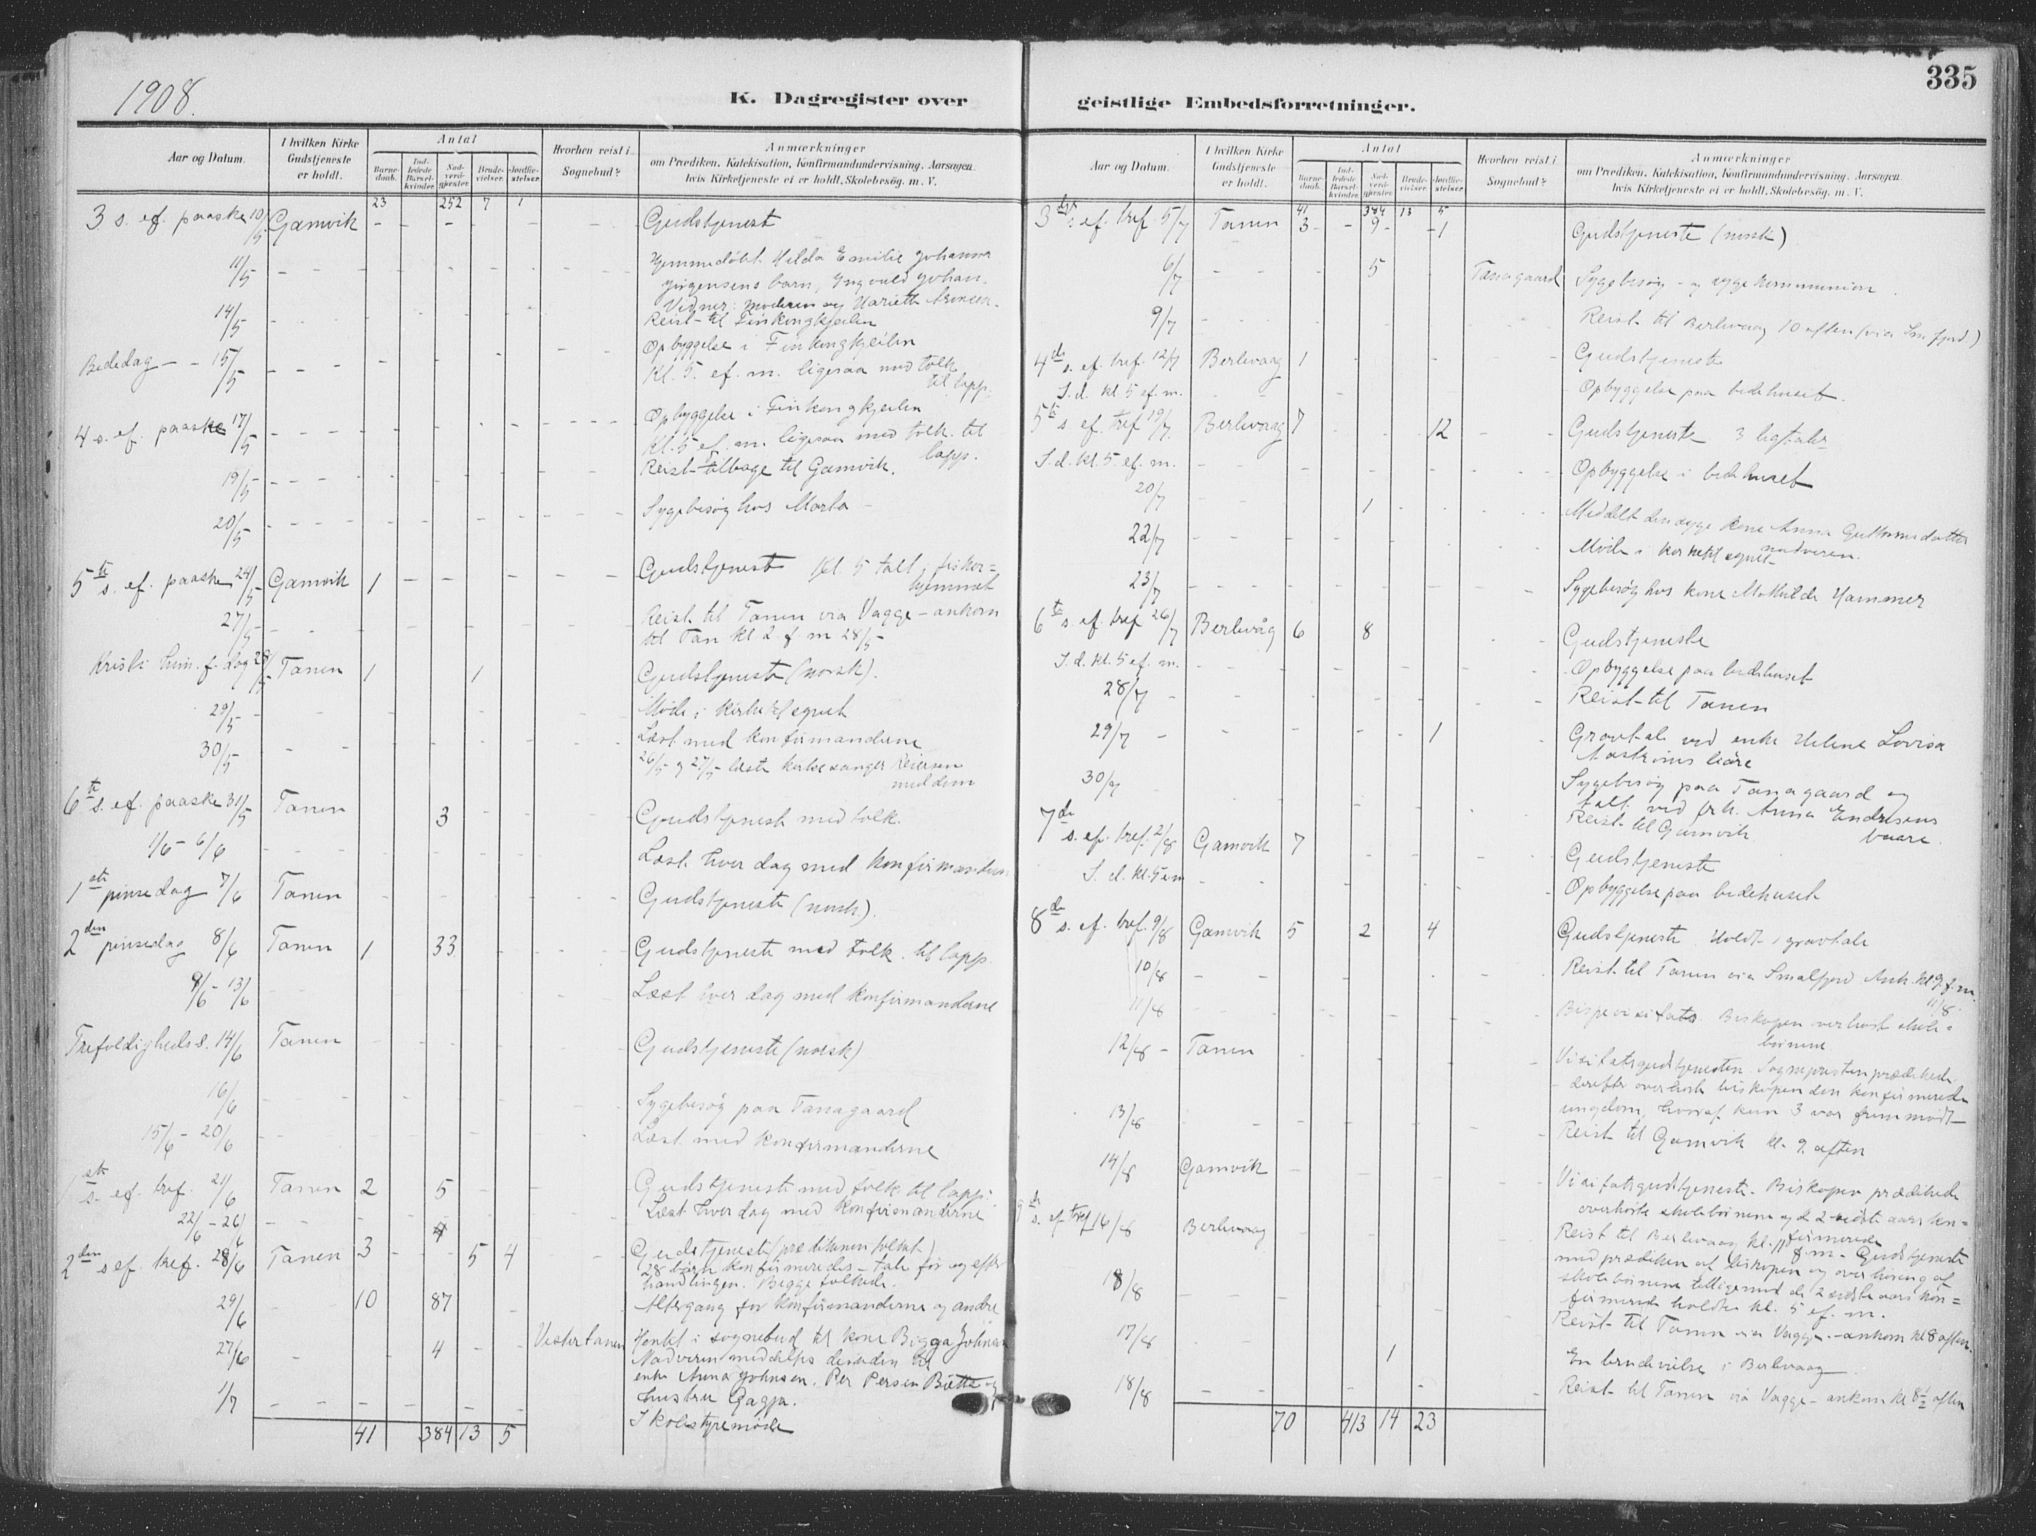 1908.
335
K. Dagregister over geistlige Embedsforretninger.
Aar og Datum.
I hvilken Kirke Gudstjeneste er holdt.
Antal
Barnedaab.
Indledede Barselkvinder.
Nadverdgjester
Brudevielser.
Jordfæstelser.
Hvorhen reist i Sognebud?
Anmærkninger
om Prædiken, Katekisation, Konfirmandundervisning, Aarsagen
hvis Kirketjeneste ei er holdt, Skolebesøg. m. V.
23 252 7 1
3 s. ef. paaske 10/5 Gamvik - - - - Gudstjenest
11/5 Hjemmedøbt Hilda Emilie Johanna
Jörgensens barn, Ingvald Johan.
Vidner: moderen og
14/5 Reist til Finkongkjeilen
Bededag - - 15/5 Opbyggelse i Finkongkjeilen
Kl. 5 ef. m. ligesaa med tolk
til lapp.
4 s. ef. paaske 17/5 Opbyggelse i Finkongkjeilen
Kl. 5 ef. m. ligesaa med tolk til
lapp.
19/5 Reist tilbage til Gamvik.
20/5 Sygebesøg hos Marta
5te s. ef. paaske 24/5 Gamvik 1 Gudstjenest Kl. 5 talt i fisker=
hjemmet
27/5 Reist til Tanen via Vagge - ankom
til Tan kl 2 f m 28/5
Kristi him. f. dag 28/5 Tanen 1 1 Gudstjeneste (norsk).
29/5 Møde i
30/5 Læst med konfirmanderne
26/5 og 27/5 læste kirkesanger Reiersen
med dem
6te s. ef. paaske 31/5 Tanen 3 Gudstjenest med tolk.
1/6 - 6/6 Læst hver dag med konfirmanderne
1ste pinsedag 7/6 Tanen Gudstjeneste (norsk).
2den pinsedag 8/6 Tanen 1 33 Gudstjeneste med tolk. til lapp.
8/6 - 13/6 Læst hver dag med konfirmanderne
Trefoldigheds s. 14/6 Tanen Gudstjeneste (norsk)
16/6 Sygebesøg paa Tanagaard
15/6 - 20/6 Læst med konfirmanderne
1ste s. ef. tref. 21/6 Tanen 2 5 Gudstjeneste med tolk til lapp.
22/6 - 26/6 Læst hver dag med konfirmanderne
2den s. ef. tref. 28/6 Tanen 3 5 4 Gudstjeneste (prædikenen tolket)
28 børn konfirmeredes - tale før og efter
handlingen. Begge tolkede.
29/6 10 87 Altergang for konfirmanderne og andre
27/6 4 Vestertanen Hentet i sognebud til kone Bigga Johnsen
Nadveren meddeltes desuden til
enke Anna Johnsen. Per Persen Bætte og
hustru Gagja.
1/7 Skolestyremøde
41 384 13 5
Aar og Datum.
I hvilken Kirke Gudstjeneste er holdt.
Antal
Barnedaab.
Indledede Barselkvinder.
Nadverdgjester
Brudevielser.
Jordfæstelser.
Hvorhen reist i Sognebud?
Anmærkninger
om Prædiken, Katekisation, Konfirmandundervisning, Aarsagen
hvis Kirketjeneste ei er holdt, Skolebesøg. m. V.
41 384 13 5
3die s. ef. tref. 5/7 Tanen 3 - - 9 - - 1 Gudstjeneste (norsk)
6/7 5 Tanagaard Sygebesøg - og sygekommunion
9/7 Reist til Berlevaag 10 aften (via fjord)
4de s. ef. tref. 12/7 Berlevaag 1 Gudstjeneste
S. d. kl 5 ef. m. Opbyggelse paa bedehuset.
5te s. ef. tref 19/7 Berlevaag 7 12 Gudstjeneste 3 ligtaler
S. d. kl. 5. ef. m. Opbyggelse i bedehuset
20/7 1 Meddelt den syge kone Anna Guttormsdatter
nadveren.
22/7 Møde i
23/7 Sygebesøg hos kone Mathilde Hammer
6te s. ef. tref 26/7 Berlevåg 6 8 Gudstjeneste
S. d. kl. 5 ef. m. Opbyggelse paa bedehuset
28/7 Reist til Tanen
29/7 1 Gravtale ved enke Helene Lovisa
baare
30/7 Sygebesøg paa Tanagaard og
talt ved frk. Anna Endresens
baare.
Reist til Gamvik
7de s. ef. tref. 2/8 Gamvik 7 Gudstjeneste
S. d. kl. 5 e m Opbyggelse paa bedehuset
8de s. ef. tref. 9/8 Gamvik 5 2 4 Gudstjeneste. Holdt 1 gravtale
10/8 Reist til Tanen via Smalfjord Ank. kl 9 f. m.
11/8
11/8 Bispevisitats. Biskopen overhørt skole=
börnene
12/8 - Tanen Visitatsgudstjenesten. Sognepresten prædikede.
derefter overhørte biskopen den konfirmerede
ungdom, hvoraf kun 3 var fremmødt
13/8 Reist til Gamvik kl. 9 aften
14/8 Gamvik Visitatsgudstjeneste. Biskopen prædikede
overhørte skolebörnene og de 2 sidste aars kon=
firmerede
9de s. ef. tref 16/8 Berlevaag Reist til Berlevaag kl. 11 f. m. - Gudstjeneste
med prædiken af biskopen og overhøring af
skolebörnene tilligemed de 2 sidste aars kon=
firmerede holdtes kl. 5 ef. m.
18/8 Reist til Tanen via Vagge - ankom kl 8 aften.
17/8 1 En brudevielse i Berlevaag
18/8 Reist til Tanen via Vagge - ankom kl 8½ aften
70 413 14 23